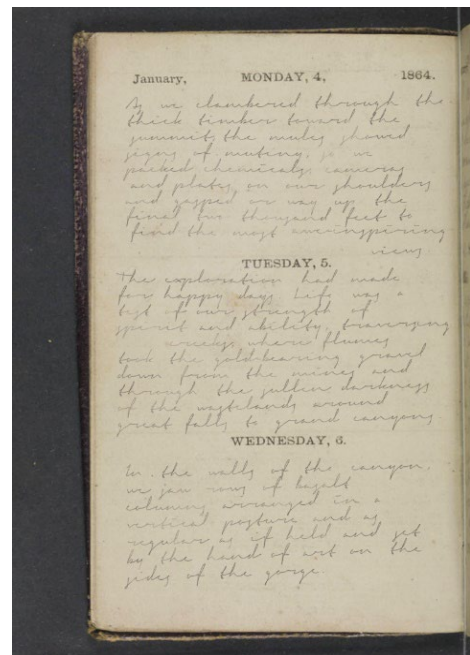 January, MONDAY, 4, 1864.
As we clambered through the
thick timber toward the
summit, the mules showed
signs of mutiny, so we
packed chemicals, cameras
and plates, on our shoulders
and gasped our way up the
final one thousand feet to
find the most aweinspiring
views.
TUESDAY, 5.
The exploration had made
for happy days. Life was a
test of our strength of
spirit and ability, traversing
creeks where flumes
took the gold-bearing gravel
down from the mines and
through the sullen darkness
of the wastelands around
great falls to grand canyons
WEDNESDAY, 6.
In the walls of the canyon,
we saw rows of basalt
columns arranged in a
vertical posture and as
regular as if held and set
by the hand of art on the
sides of the gorge.